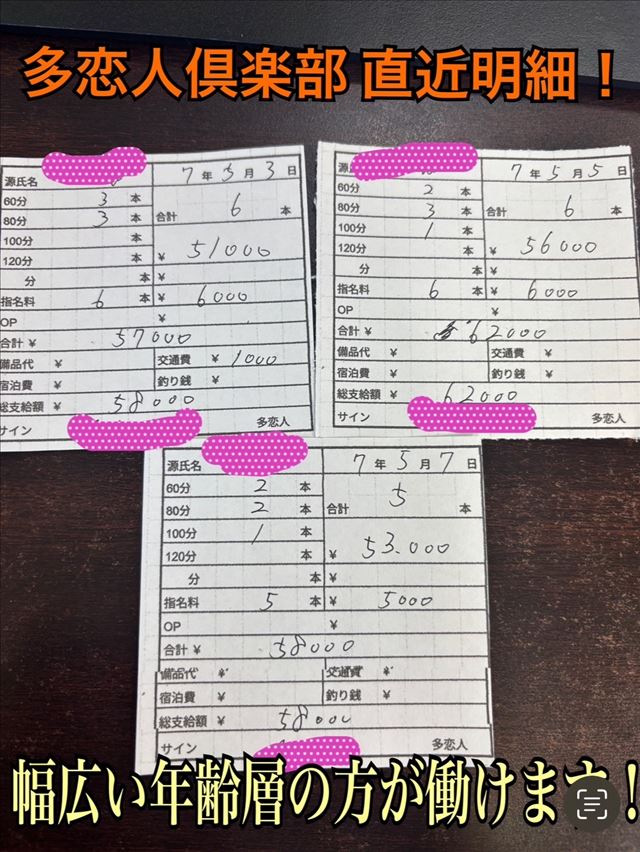 多恋人倶楽部 直近明細！
源氏名
7年5月3日
60分 3 本
80分 3 本 合計 6 本
100分 本
120分 本 ¥ 51000
分 本 ¥
指名料 6 本 ¥ 6000
OP ¥
合計 ¥ 57000
備品代 ¥ 交通費 ¥ 1000
宿泊費 ¥ 釣り銭 ¥
総支給額 ¥ 58000
サイン 多恋人
源
7年5月5日
60分 2 本
80分 3 本 合計 6 本
100分 1 本
120分 本 ¥ 56000
分 本 ¥
指名料 6 本 ¥ 6000
OP ¥
合計 ¥ 62000
備品代 ¥ 交通費 ¥
宿泊費 ¥ 釣り銭 ¥
総支給額 ¥ 62000
サイン 多恋人
源氏名
7年5月7日
60分 2 本
80分 2 本 合計 5 本
100分 1 本
120分 本 ¥ 53.000
分 本 ¥
指名料 5 本 ¥ 5000
OP ¥
合計 ¥ 58000
備品代 ¥ 交通費 ¥
宿泊費 ¥ 釣り銭 ¥
総支給額 ¥ 58000
サイン 多恋人
幅広い年齢層の方が働けます！